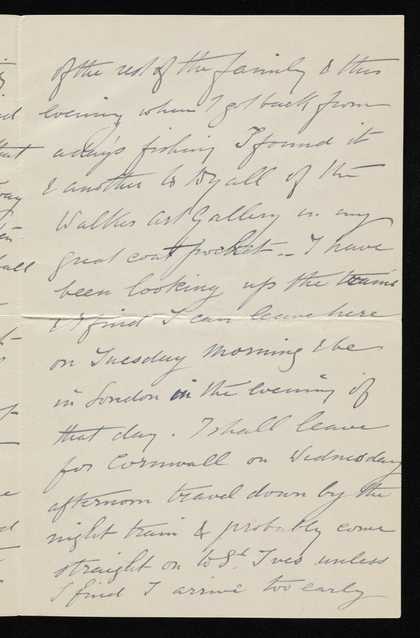 of the rest of the family & this
evening when I got back from
a days fishing I found it
& another to Dyall of the
Walker Art Gallery in my
great coat pocket - I have
been looking up the trains
& I find I can leave here
on Tuesday morning & be
in London in the evening of
that day. I shall leave
for Cornwall on Wednesday
afternoon travel down by the
night train & probably come
straight on to St. Ives unless
I find I arrive too early